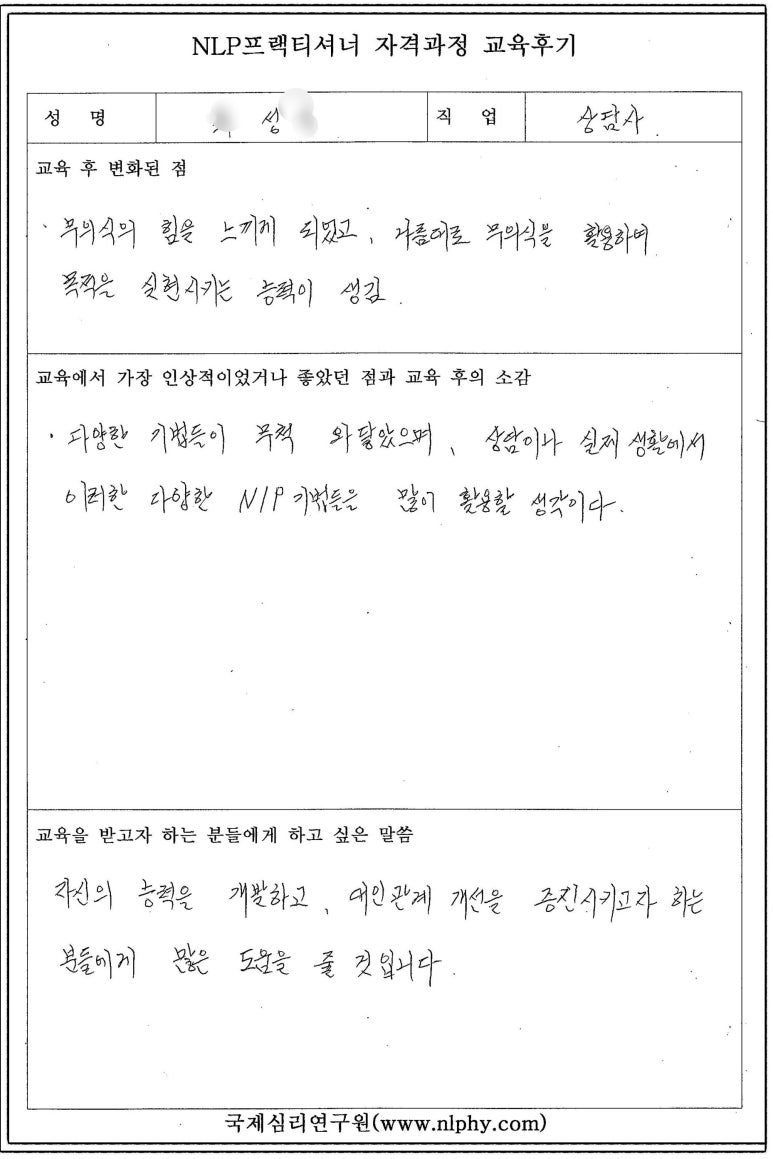 NLP프랙티셔너 자격과정 교육후기
성 명 성 직 업 상담사.
교육 후 변화된 점
· 무의식의 힘을 느끼게 되었고, 나름대로 무의식을 활용하며
목적을 실현시키는 능력이 생김.
교육에서 가장 인상적이었거나 좋았던 점과 교육 후의 소감
· 다양한 기법들이 무척 와닿았으며, 상담이나 실제 생활에서
이러한 다양한 NLP 기법들을 많이 활용할 생각이다.
교육을 받고자 하는 분들에게 하고 싶은 말씀
자신의 능력을 개발하고, 대인관계 개선을 증진시키고자 하는
분들에게 많은 도움을 줄 것입니다.
국제심리연구원(www.nlphy.com)